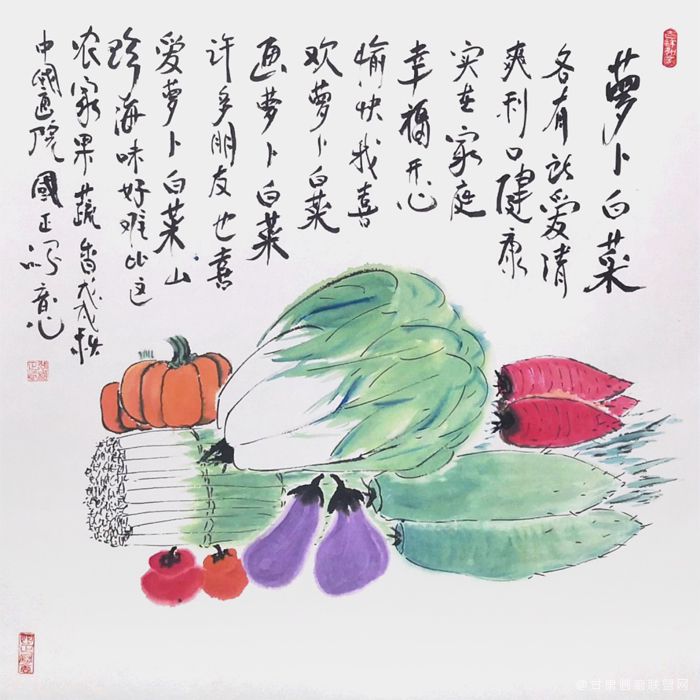 萝卜白菜
各有所爱清
爽利口健康
实在家庭
幸福开心
愉快我喜
欢萝卜白菜
画萝卜白菜
许多朋友也喜
爱萝卜白菜山
珍海味好难比这
农家果蔬香戊戌秋
中國画院國正写意